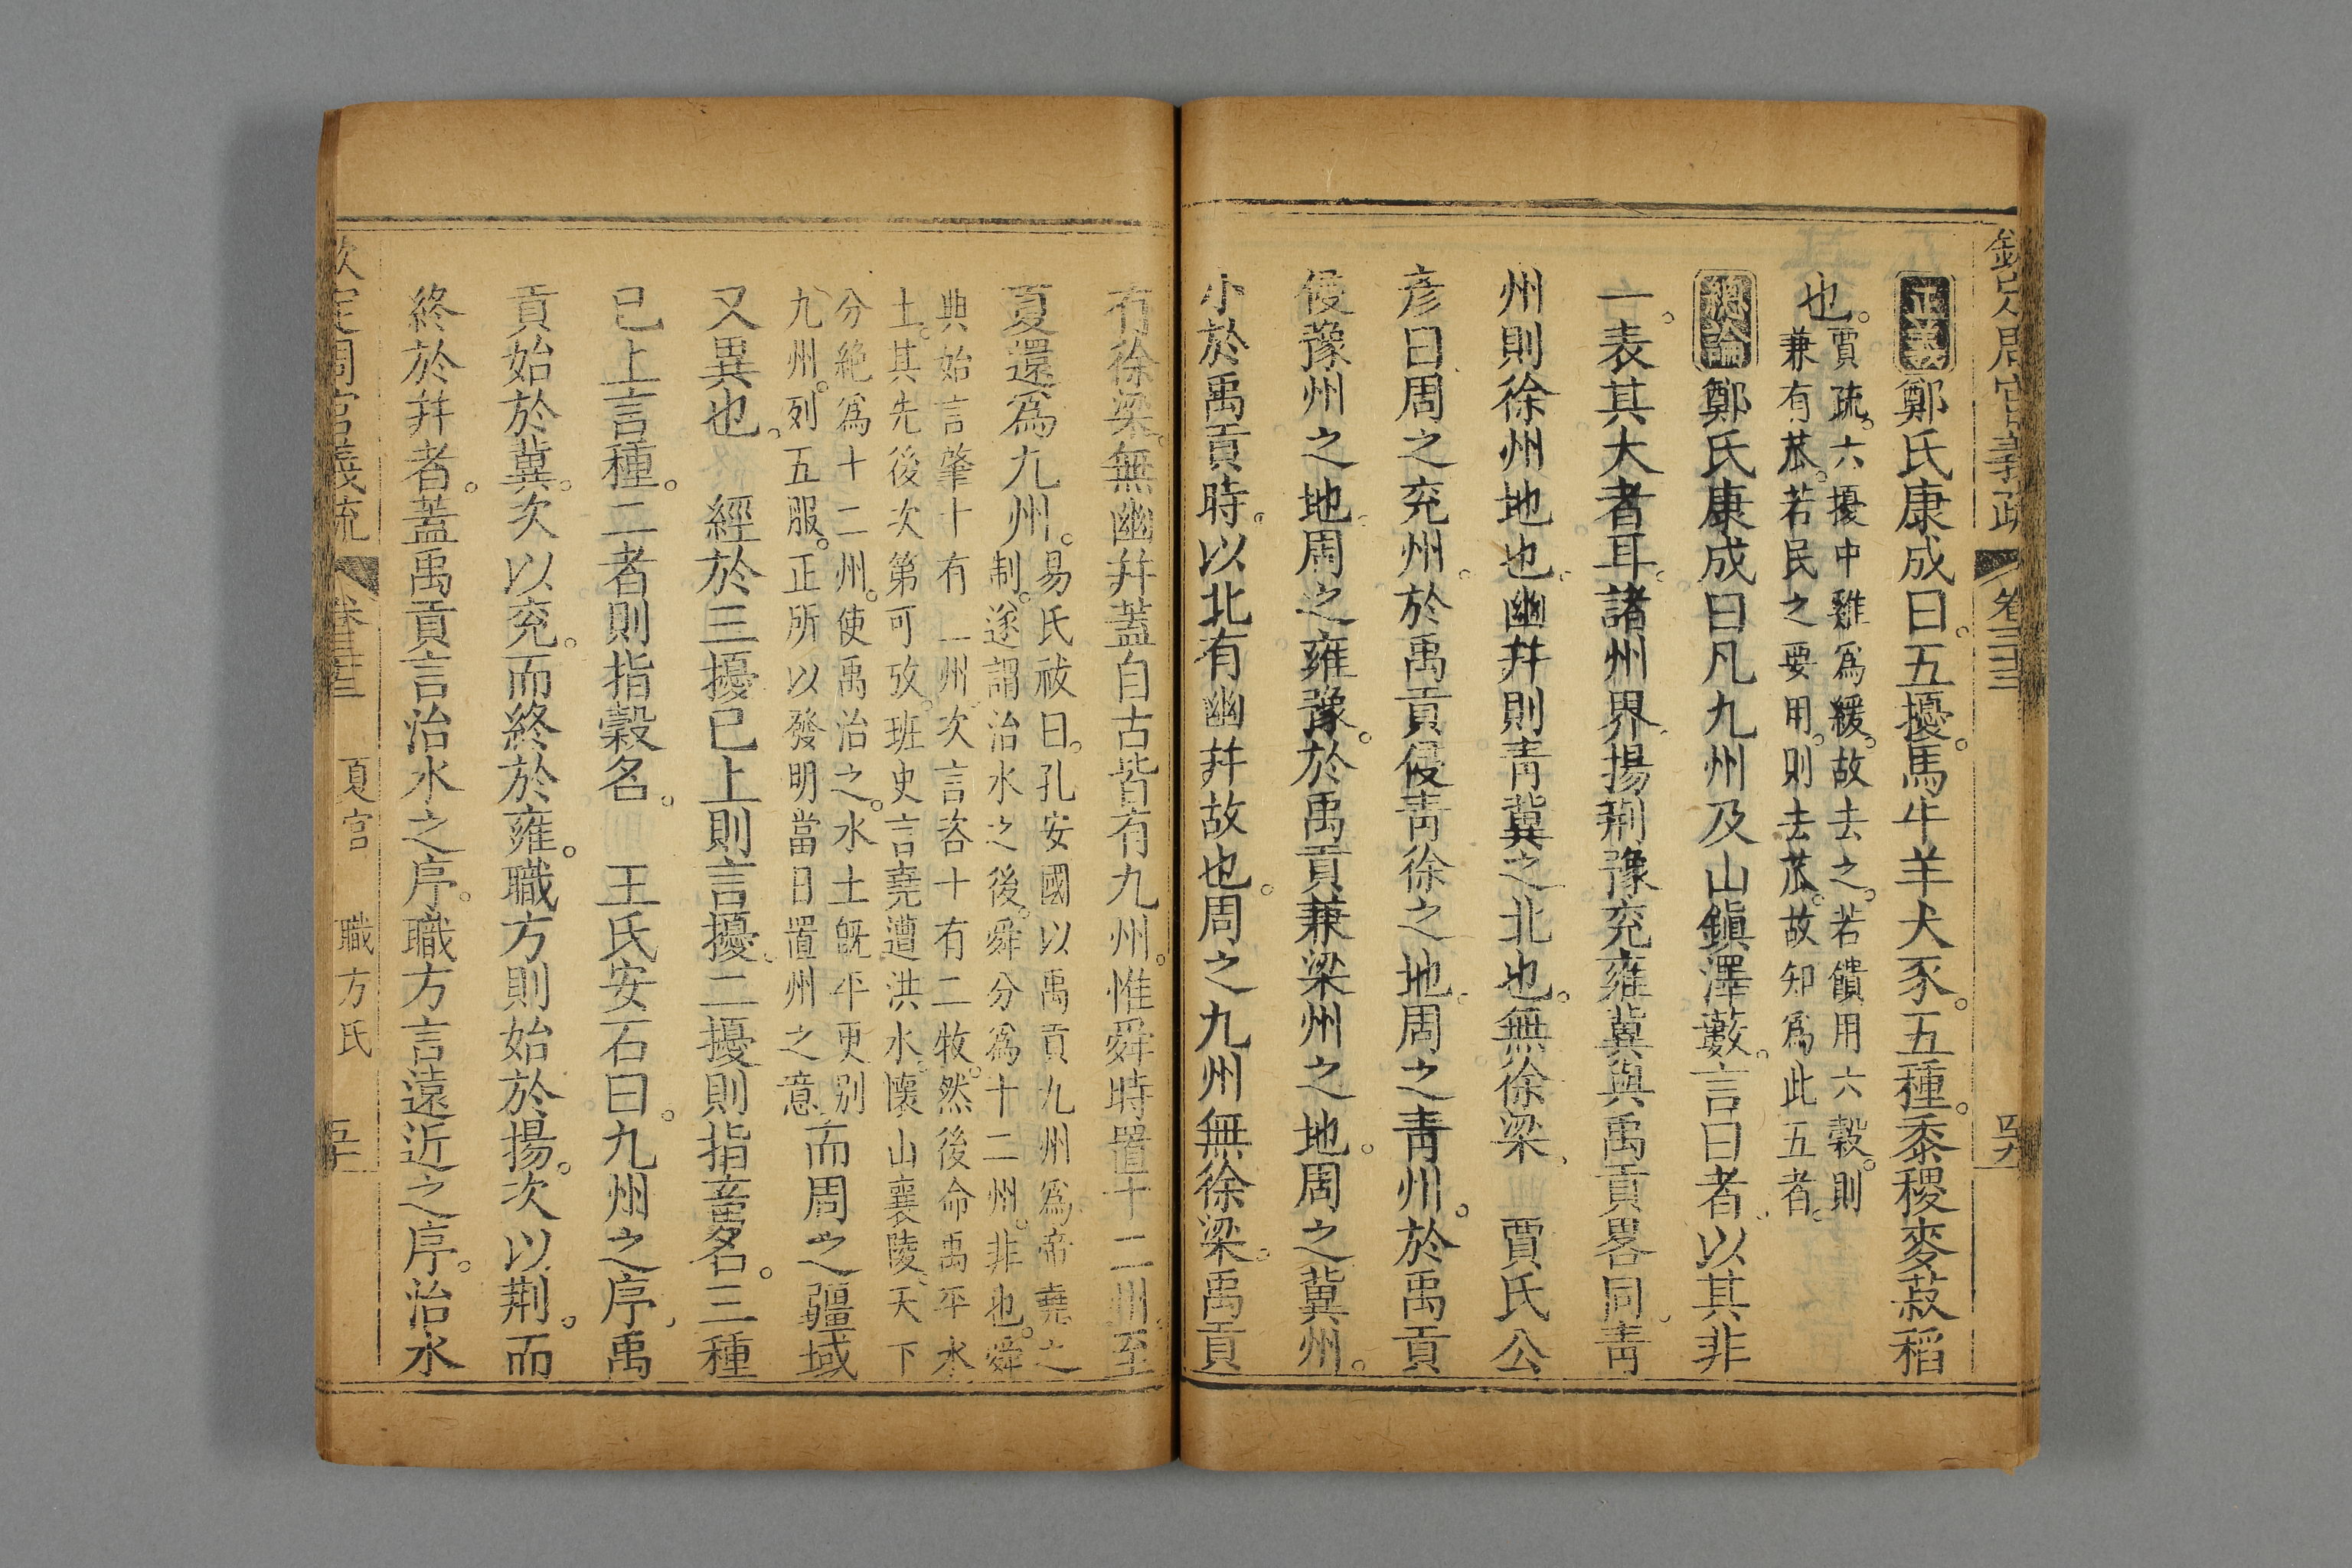 欽定周官義疏 卷三十三
正義鄭氏康成曰。五擾。馬牛羊犬豕。五種。黍稷麥菽稻
也。賈疏。六擾中雞爲緩。故去之。若饋用六穀。則
兼有苽。若民之要用。則去苽。故知爲此五者。
總論鄭氏康成曰凡九州及山鎮澤藪。言曰者。以其非
一。表其大者耳。諸州界。揚荆豫兖雍冀與禹貢畧同。靑
州則徐州地也。幽幷則靑冀之北也。無徐梁。 賈氏公
彥曰周之兖州。於禹貢侵靑徐之地。周之靑州。於禹貢
侵豫州之地。周之雍豫。於禹貢兼梁州之地。周之冀州。
小於禹貢時。以北有幽幷故也。周之九州無徐梁。禹貢
有徐梁。無幽幷蓋自古皆有九州。惟舜時置十二州。至
夏還爲九州。易氏祓曰。孔安國以禹貢九州爲帝堯之
制。遂謂治水之後。舜分爲十二州。非也。舜
典始言肇十有二州。次言咨十有二牧。然後命禹平水
土。其先後次第可攷。班史言堯遭洪水。懷山襄陵。天下
分絶爲十二州。使禹治之。水土旣平。更别
九州。列五服。正所以發明當日置州之意而周之疆域
又異也。 經於三擾已上則言擾。二擾則指畜名。三種
已上言種。二者則指穀名。 王氏安石曰。九州之序。禹
貢始於冀。次以兖。而終於雍。職方則始於揚。次以荆。而
終於幷者。蓋禹貢言治水之序。職方言遠近之序。治水
欽定周官義疏 卷三十三 夏官 職方氏